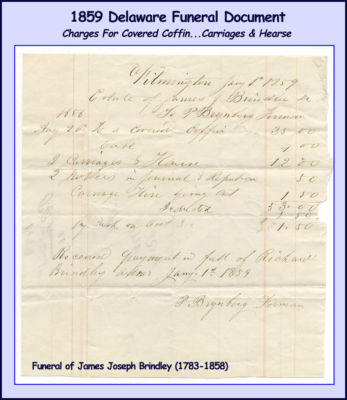 1859 Delaware Funeral Document
Charges For Covered Coffin...Carriages & Hearse
Wilmington Jany 1st 1859
Estate of James J Brindley
To P Brynberg Forman
To a covered Coffin 35 00
Case
Carriages & Hearse 12 00
2 Notices in Journal & Republican 50
Carriage Hire going out 1 50
Received payment in full of Richard
Brindley Jany. 1st 1859
P. Brynberg Forman
Funeral of James Joseph Brindley (1783-1858)